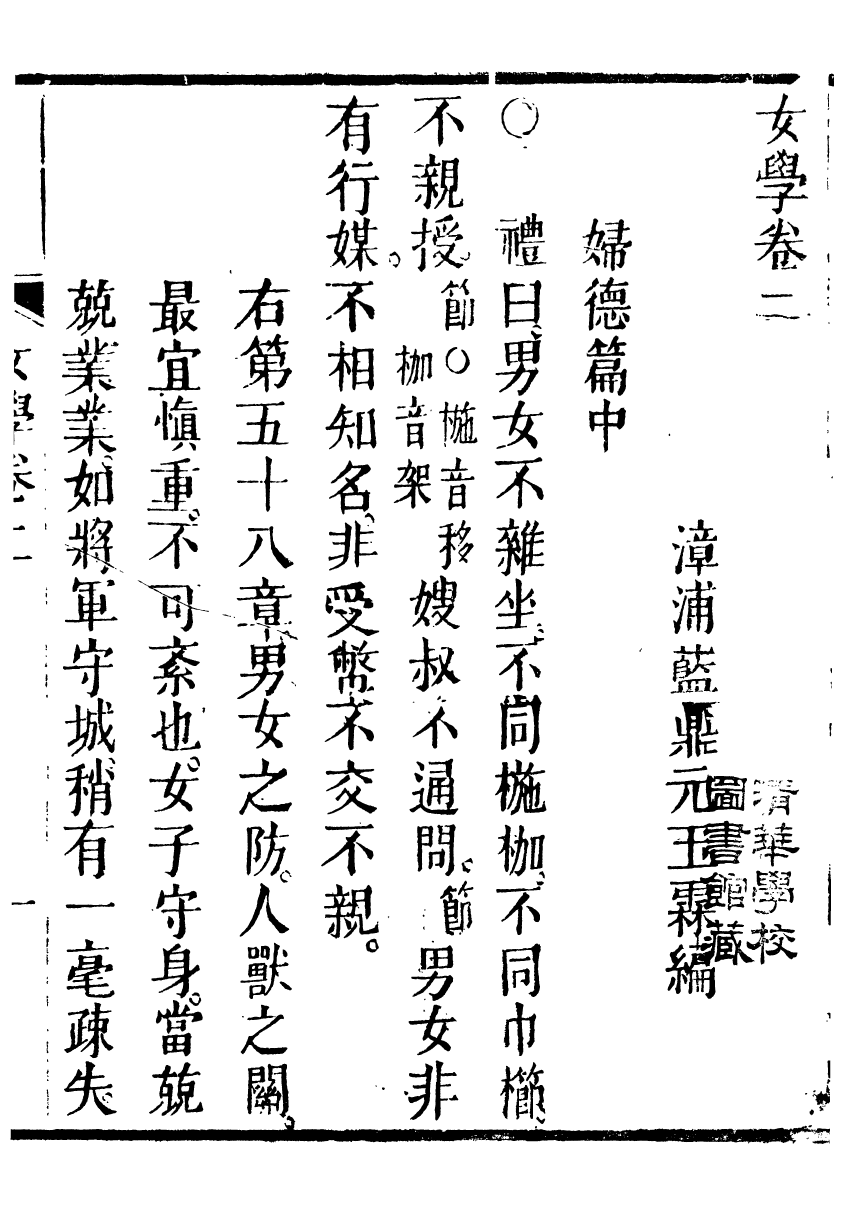 女學卷二
漳浦藍鼎元玉霖編
清華學校
圖書館藏
婦德篇中
○禮曰、男女不雜坐、不同椸枷、不同巾櫛、
不親授。節○椸音移枷音架嫂叔不通問。節男女非
有行媒。不相知名。非受幣不交不親。
右第五十八章男女之防。人獸之關。
最宜慎重。不可紊也。女子守身。當兢
兢業業。如將軍守城稍有一毫疎失。
女學卷二
一